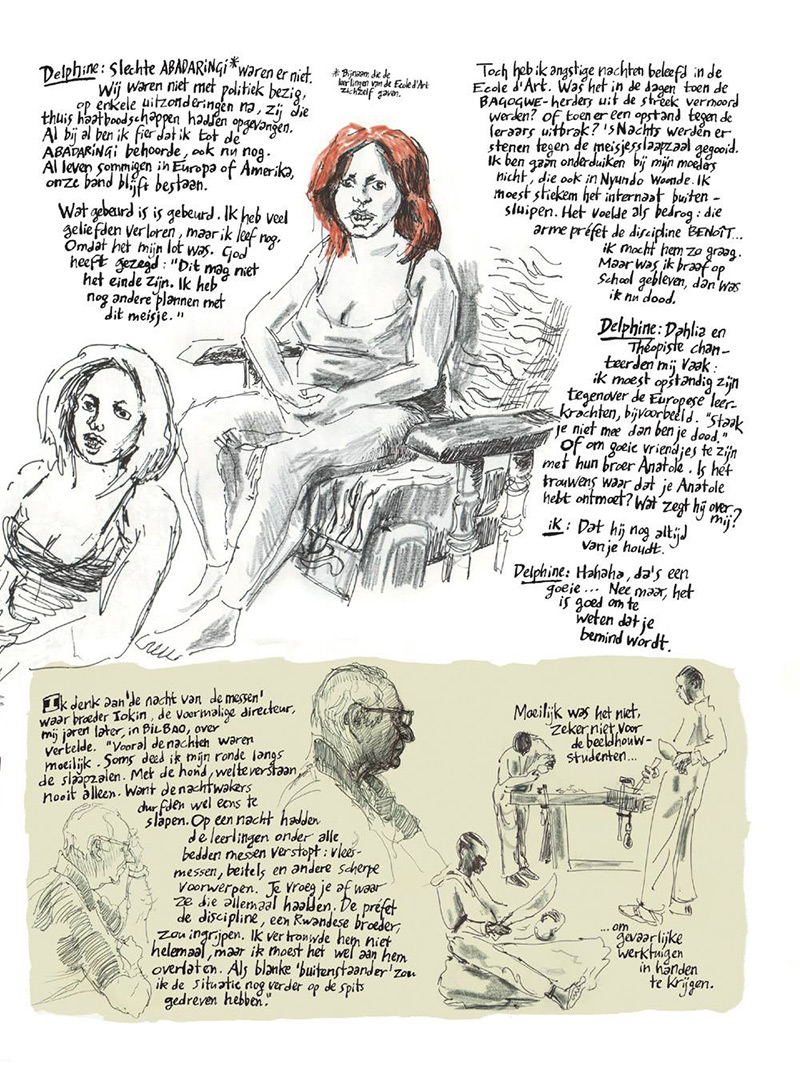 Delphine: Slechte ABADARINGI* waren er niet.
Wij waren niet met politiek bezig,
op enkele uitzonderingen na, zij die
thuis haatboodschappen hadden opgevangen.
Al bij al ben ik fier dat ik tot de
ABADARINGI behoorde, ook nu nog.
Al leven sommigen in Europa of Amerika,
onze band blijft bestaan.
Wat gebeurd is is gebeurd. Ik heb veel
geliefden verloren, maar ik leef nog.
Omdat het mijn lot was. God
heeft gezegd: "Dit mag niet
het einde zijn. Ik heb
nog andere plannen met
dit meisje."
* Bijnaam die de
leerlingen van de Ecole d'Art
zichzelf gaven.
Toch heb ik angstige nachten beleefd in de
Ecole d'Art. Was het in de dagen toen de
BAGOGWE-herders uit de streek vermoord
werden? Of toen er een opstand tegen de
leraars uitbrak? 's Nachts werden er
stenen tegen de meisjesslaapzaal gegooid.
Ik ben gaan onderduiken bij mijn moeders
nicht, die ook in Nyundo woonde. Ik
moest stiekem het internaat buiten-
sluipen. Het voelde als bedrog: die
arme préfet de discipline BENOÎT...
ik mocht hem zo graag.
Maar was ik braaf op
school gebleven, dan was
ik nu dood.
Delphine: Dahlia en
Théopiste chan-
teerden mij vaak:
ik moest opstandig zijn
tegenover de Europese leer-
krachten, bijvoorbeeld. "Staak
je niet mee dan ben je dood."
Of om goeie vriendjes te zijn
met hun broer Anatole. Is het
trouwens waar dat je Anatole
hebt ontmoet? Wat zegt hij over
mij?
ik: Dat hij nog altijd
van je houdt.
Delphine: Hahaha, da's een
goeie... Nee maar, het
is goed om te
weten dat je
bemind wordt.
Ik denk aan 'de nacht van de messen'
waar broeder Iokin, de voormalige directeur,
mij jaren later, in BILBAO, over
vertelde. "Vooral de nachten waren
moeilijk. Soms deed ik mijn ronde langs
de slaapzalen. Met de hond, welteverstaan,
nooit alleen. Want de nachtwakers
durfden wel eens te
slapen. Op een nacht hadden
de leerlingen onder alle
bedden messen verstopt: vlees-
messen, beitels en andere scherpe
voorwerpen. Je vroeg je af waar
ze die allemaal haalden. De préfet
de discipline, een Rwandese broeder,
zou ingrijpen. Ik vertrouwde hem niet
helemaal, maar ik moest het wel aan hem
overlaten. Als blanke 'buitenstaander' zou
ik de situatie nog verder op de spits
gedreven hebben."
Moeilijk was het niet,
zeker niet voor
de beeldhouw-
studenten...
...om
gevaarlijke
werktuigen
in handen
te krijgen.